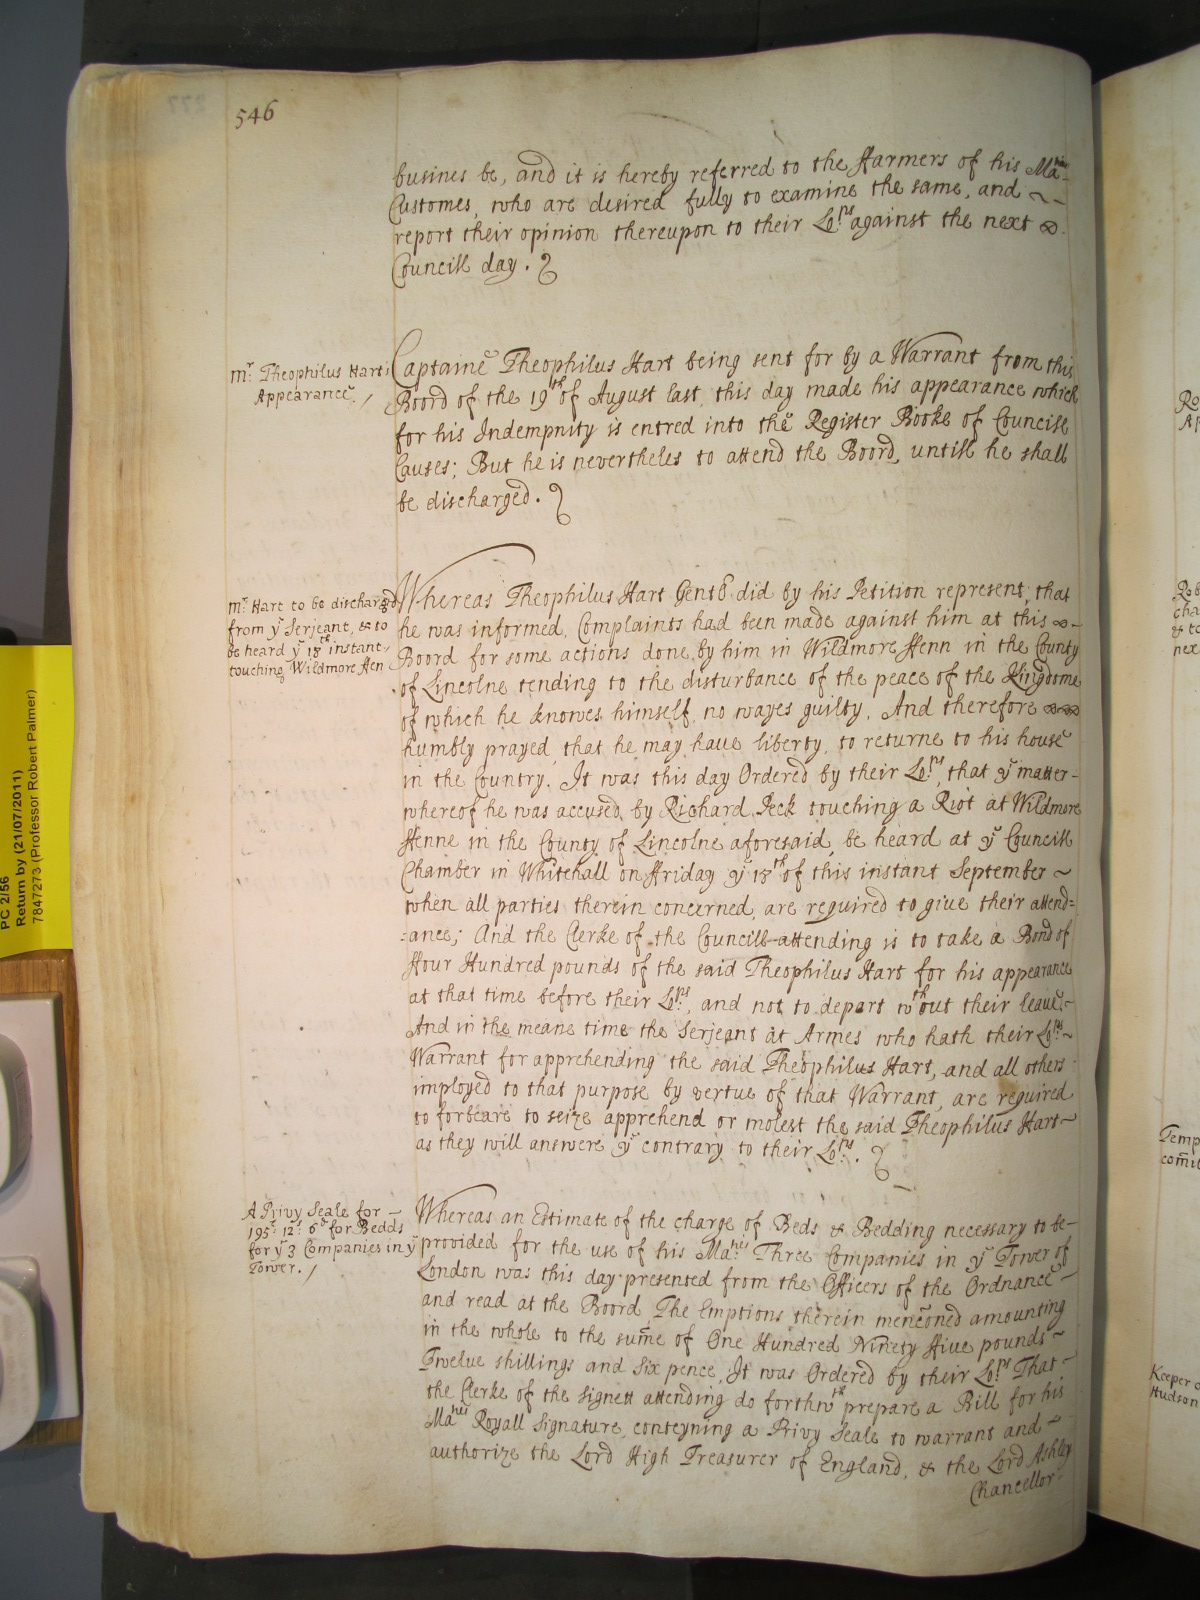 546
busines be, and it is hereby referred to the ffarmers of his Ma:ties
Customes, who are desired fully to examine the same, and
report their opinion thereupon to their Lo:ps against the next
Councill day.
mr Theophilus Hart
Appearance. /
Captaine Theophilus Hart being sent for by a Warrant from this
Board of the 19th of August last, this day made his appearance which
for his Indempnity is entred into the Register Booke of Councill
Causes; But he is nevertheles to attend the Board, untill he shall
be discharged.
mr Hart to be discharged
from ye Serjeant, & to
be heard ye 18th instant,
touching Wildmore ffen
Whereas Theophilus Hart Gent did by his Petition represent, that
he was informed, Complaints had been made against him at this
Board for some actions done by him in Wildmore ffenn in the County
of Lincolne tending to the disturbance of the peace of the Kingdome
of which he knowes himself no wayes guilty, And therefore
humbly prayed, that he may haue liberty, to returne to his house
in the Country. It was this day Ordered by their Lo:ps, that ye matter
whereof he was accused, by Richard Peck touching a Riot at Wildmore
ffenne in the County of Lincolne aforesaid, be heard at ye Councill
Chamber in Whitehall on ffriday ye 18th of this instant September
when all parties therein concerned, are required to giue their attend=
=ance; And the Clerke of the Councill attending is to take a Bond of
ffour Hundred pounds of the said Theophilus Hart for his appearance
at that time before their Lo:ps, and not to depart wthout their leaue.
And in the meane time the Serjeant at Armes who hath their Lo:ps
Warrant for apprehending the said Theophilus Hart, and all others
imployed to that purpose by vertue of that Warrant, are required
to forbeare to seize apprehend or molest the said Theophilus Hart
as they will answere ye contrary to their Lo:ps.
A Privy Seale for
195: 12s: 6d for Bedds
for ye 3 Companies in ye
Tower. /
Whereas an Estimate of the charge of Beds & Bedding necessary to be
provided for the use of his Ma:ties Three Companies in ye Tower of
London was this day presented from the Officers of the Ordnance
and read at the Board, The Emptions therein menc̄oned amounting
in the whole to the sum̄e of One Hundred Ninety ffiue pounds
Twelue shillings and six pence, It was Ordered by their Lo:ps That
the Clerke of the Signett attending do forthwth prepare a Bill for his
Ma:ties Royall Signature, conteyning a Privy Seale to warrant and
authorize the Lord High Treasurer of England, & the Lord Ashley
Chancellor
PC 2/56
Return by (21/07/2011)
7847273 (Professor Robert Palmer)
Keeper
Hudson